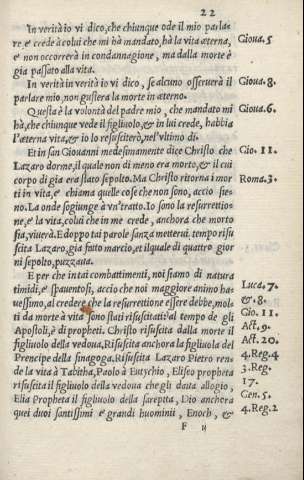 22
In verità io vi dico, che chiunque ode il mio parla-
re e' crede à colui che mi hà mandato, hà la vita æterna, Gioua. 5
e' non occorrerà in condannagione, ma dalla morte è
gia passato alla vita.
In verità in verità io vi dico, se alcuno osseruerà il Gioua. 8.
parlare mio, non gustera la morte in æterno.
Questa è la volontà del padre mio, che mandato mi Gioua. 6.
hà, che chiunque vede il figliuolo, & in lui crede, habbia
l'æterna vita, & io lo resusciterò, nel'vltimo dì.
Et in san Giouanni medesimamente dice Christo che Gio. 11.
Lazaro dorme, il quale non di meno era morto, & il cui
corpo di gia era stato sepolto. Ma Christo ritorna i mor Roma. 3.
ti in vita, e' chiama quelle cose che non sono, accio sie-
no. La onde sogiunge à vn'tratto. Io sono la resurrettio-
ne, e' la vita, colui che in me crede, anchora che morto
sia, viuerà. E doppo tai parole sanza metterui tempo risu
scita Lazaro, gia fatto marcio, et il quale di quattro gior
ni sepolto, puzzaua.
E per che in tai combattimenti, noi siamo di natura
timidi, e' spauentosi, accio che noi maggiore animo ha- Luca. 7.
uessimo, al credere che la resurrettione esser debbe, mol- & 8.
ti da morte à vita sono stati risuscitati al tempo de gli Gio. 11.
Apostoli, è di propheti. Christo risuscita dalla morte il Act. 9.
figliuolo della vedoua, Risuscita anchora la figliuola del Act. 20.
Prencipe della sinagoga. Risuscita Lazaro Pietro ren- 4. Reg. 4
de la vità à Tabitha, Paolo à Eutychio, Eliseo propheta 3. Reg.
risuscita il figliuolo della vedoua che gli daua allogio, 17.
Elia Propheta il figliuolo della sareptta, Dio anchora Gen. 5.
quei duoi santissimi e' grandi huominii, Enoch, & 4. Reg. 2
F ij